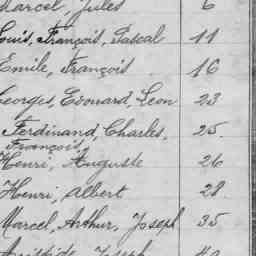 Marcel, Jules 6
Louis, François, Pascal 11
Emile, François 16
Georges, Edouard, Leon 23
Ferdinand, Charles, 25
François,
Henri, Auguste 26
Henri, Albert 28
Marcel, Arthur, Joseph 35
Aristide, Joseph 40